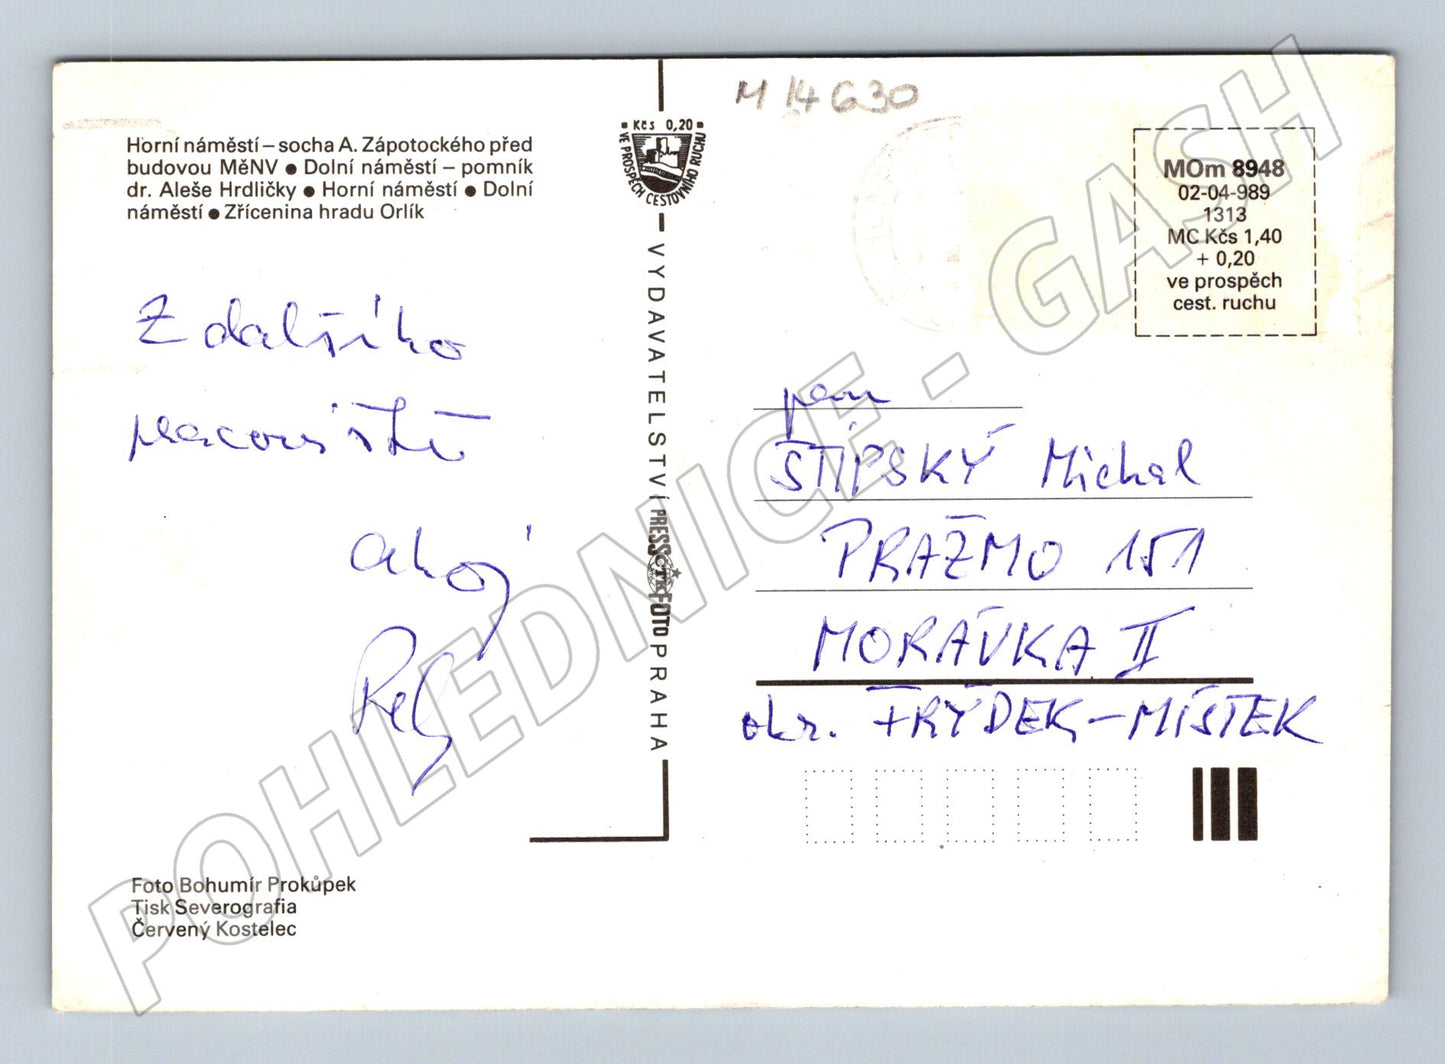 M 14630
Horní náměstí – socha A. Zápotockého před
budovou MěNV ● Dolní náměstí – pomník
dr. Aleše Hrdličky ● Horní náměstí ● Dolní
náměstí ● Zřícenina hradu Orlík
Kčs 0,20
VE PROSPĚCH CESTOVNÍHO RUCHU
MOm 8948
02-04-989
1313
MC Kčs 1,40
+ 0,20
ve prospěch
cest. ruchu
Z dalšího
pracoviště
ahoj
VYDAVATELSTVÍ PRESSFOTO PRAHA
ČTK
pan
STÍPSKÝ Michal
PRAŽMO 151
MORÁVKA II
okr. FRÝDEK-MÍSTEK
Foto Bohumír Prokůpek
Tisk Severografia
Červený Kostelec
POHLEDNICE - GASH